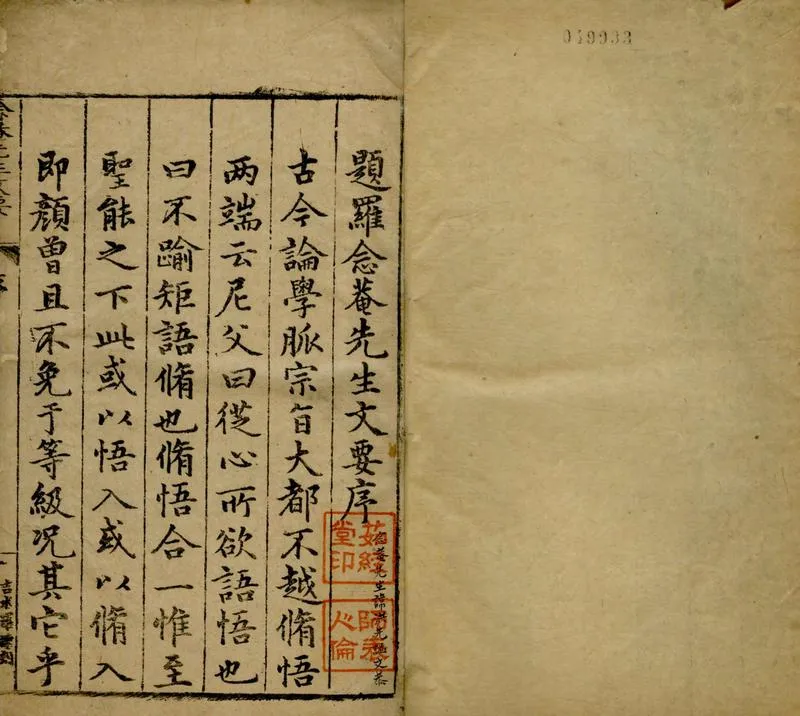 049033
題羅念菴先生文要序
古今論學脈宗旨大都不越脩悟
两端云尼父曰從心所欲語悟也
曰不踰矩語脩也脩悟合一惟至
聖能之下此或以悟入或以脩入
即顏曾且不免于等級况其它乎